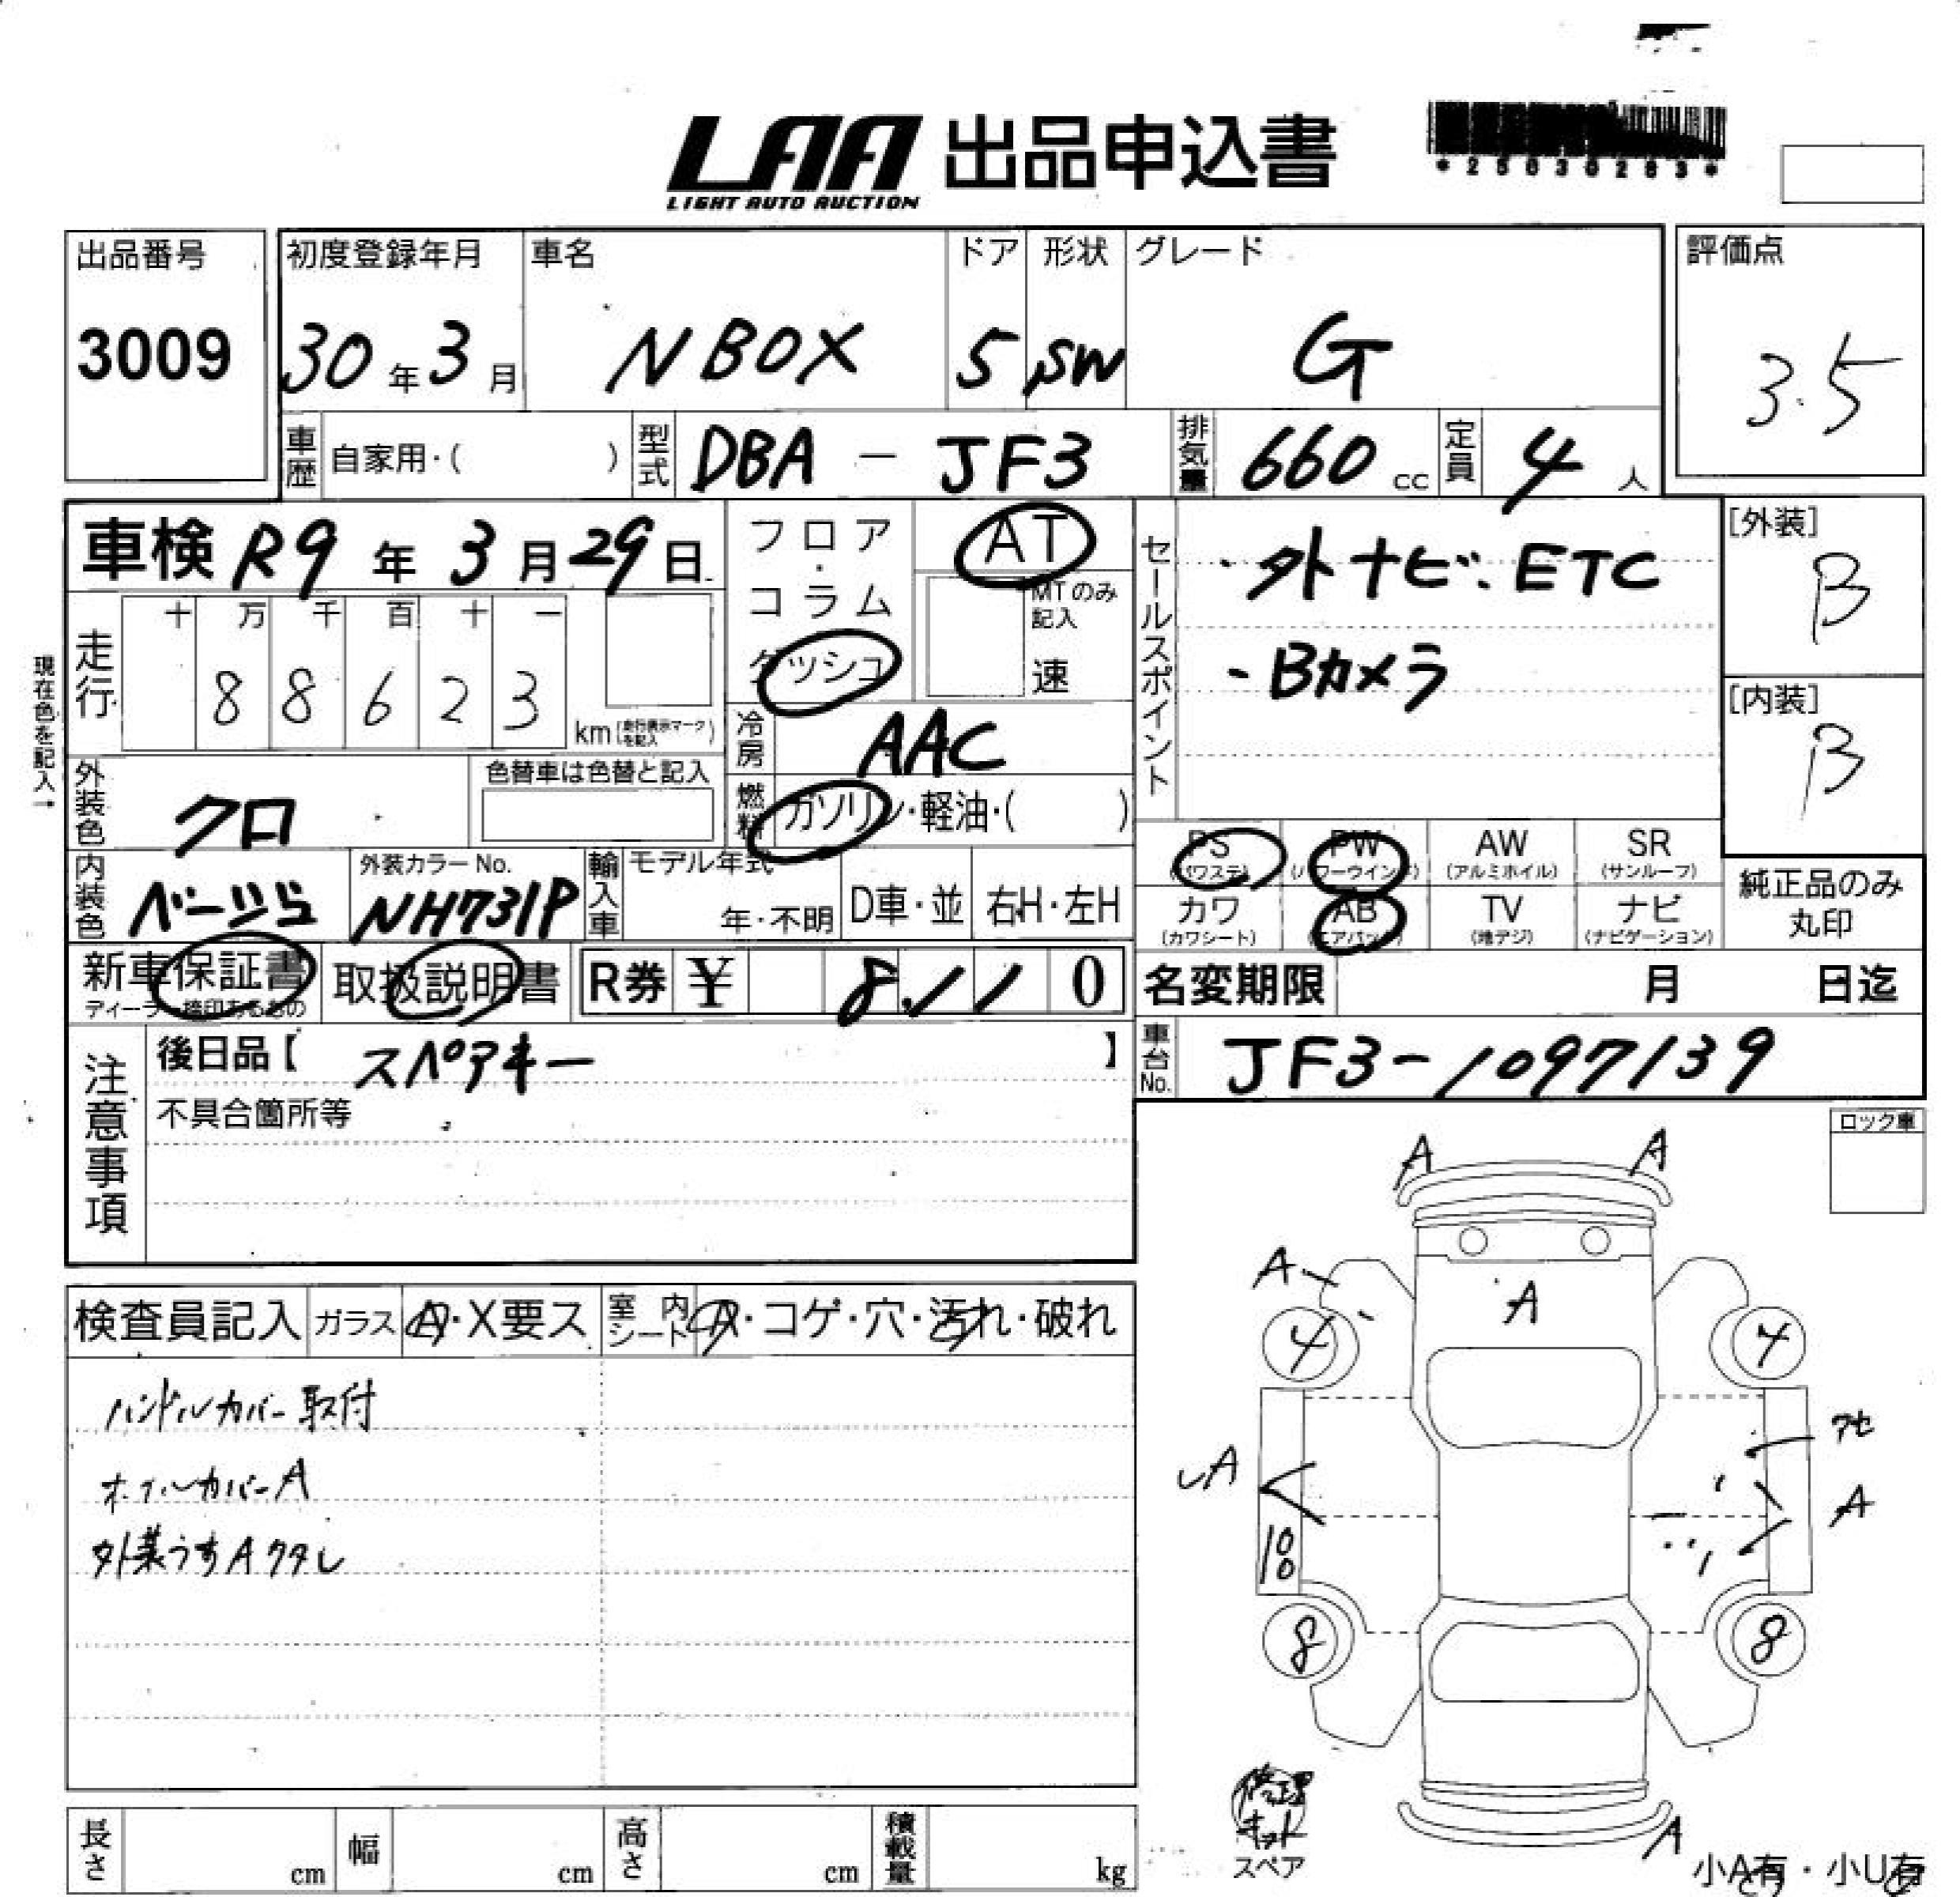 LAA 出品申込書
LIGHT AUTO AUCTION
*25030283*
出品番号
3009
初度登録年月
30年3月
車名
N BOX
ドア
5
形状
SW
グレード
G
評価点
3.5
車歴 自家用・( )
型式 DBA-JF3
排気量 660 cc
定員 4人
車検 R9年3月29日
走行
十 万 千 百 十 一
8 8 6 2 3
km(走行表示マークを記入)
現在色を記入→
フロア・コラム
ダッシュ
AT
MTのみ記入
速
冷房 AAC
燃料 ガソリン・軽油・( )
セールスポイント
・外ナビ、ETC
・Bカメラ
[外装]
B
[内装]
B
外装色 クロ
色替車は色替と記入
内装色 ベージュ
外装カラーNo.
NH731P
輸入車
モデル年式
年・不明
D車・並
右H・左H
PS
(パワステ)
PW
(パワーウインド)
AW
(アルミホイル)
SR
(サンルーフ)
カワ
(カワシート)
AB
(エアバック)
TV
(地デジ)
ナビ
(ナビゲーション)
純正品のみ
丸印
新車保証書
ディーラー捺印あるもの
取扱説明書
R券 ¥ 8,110
名変期限 月 日迄
車台No. JF3-1097139
注意事項
後日品【 スペアキー 】
不具合箇所等
ロック車
検査員記入
ガラス
A・X要ス
室内シート
A・コゲ・穴・汚れ・破れ
ハンドルカバー取付
ホイルカバーA
外装うすAクタレ
A A
A
A
4 4
アセ
A
A
10
0
8 8
修理
キット
スペア
A
小A有・小U有
長さ cm
幅 cm
高さ cm
積載量 kg